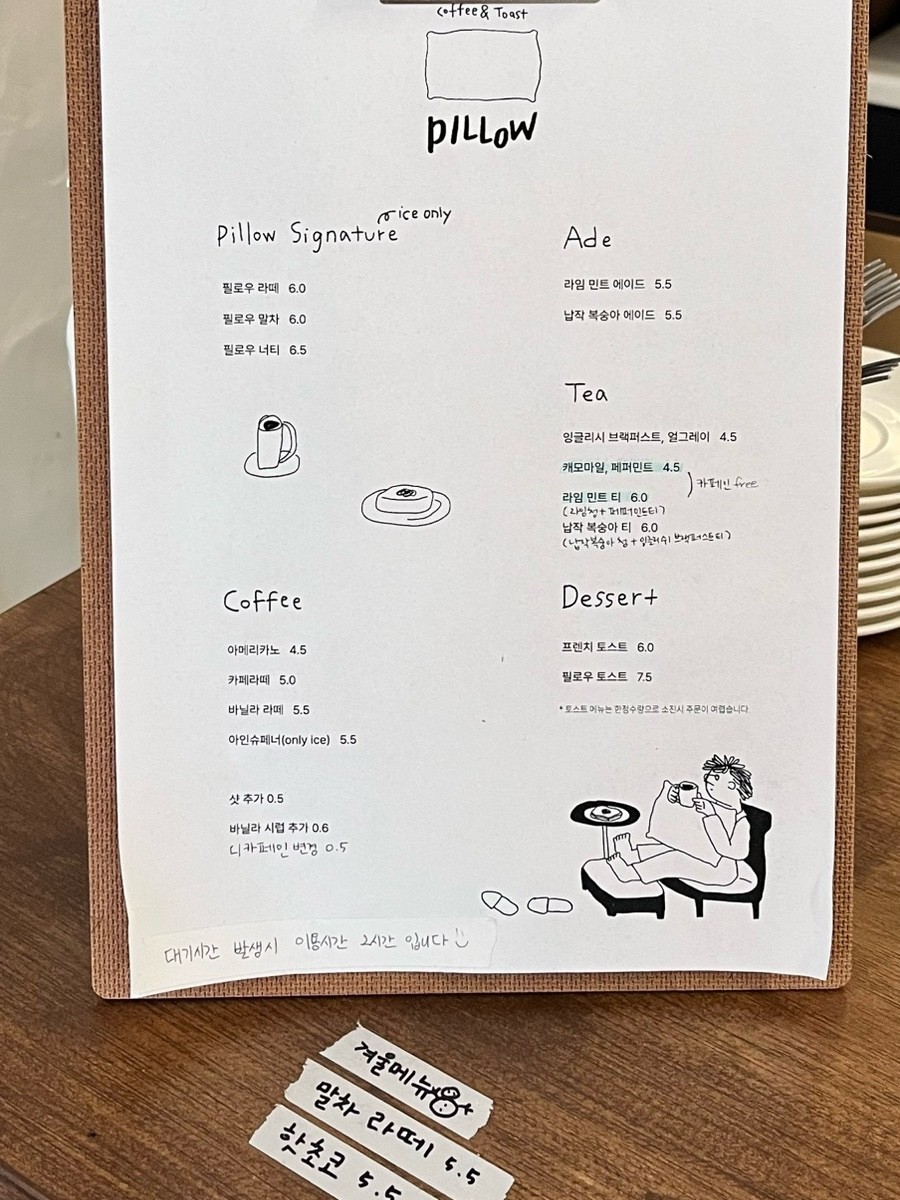 Coffee & Toast
PILLOW
Pillow Signature
ice only
필로우 라떼 6.0
필로우 말차 6.0
필로우 너티 6.5
Coffee
아메리카노 4.5
카페라떼 5.0
바닐라 라떼 5.5
아인슈페너(only ice) 5.5
샷 추가 0.5
바닐라 시럽 추가 0.6
디카페인 변경 0.5
Ade
라임 민트 에이드 5.5
납작 복숭아 에이드 5.5
Tea
잉글리시 브랙퍼스트, 얼그레이 4.5
캐모마일, 페퍼민트 4.5
카페인 free
라임 민트 티 6.0
(라임청 + 페퍼민트티)
납작 복숭아 티 6.0
(납작복숭아 청 + 잉글리쉬 브랙퍼스트티)
Dessert
프렌치 토스트 6.0
필로우 토스트 7.5
* 토스트 메뉴는 한정수량으로 소진시 주문이 어렵습니다.
대기시간 발생시 이용시간 2시간 입니다
겨울메뉴
말차 라떼 5.5
핫초코 5.5